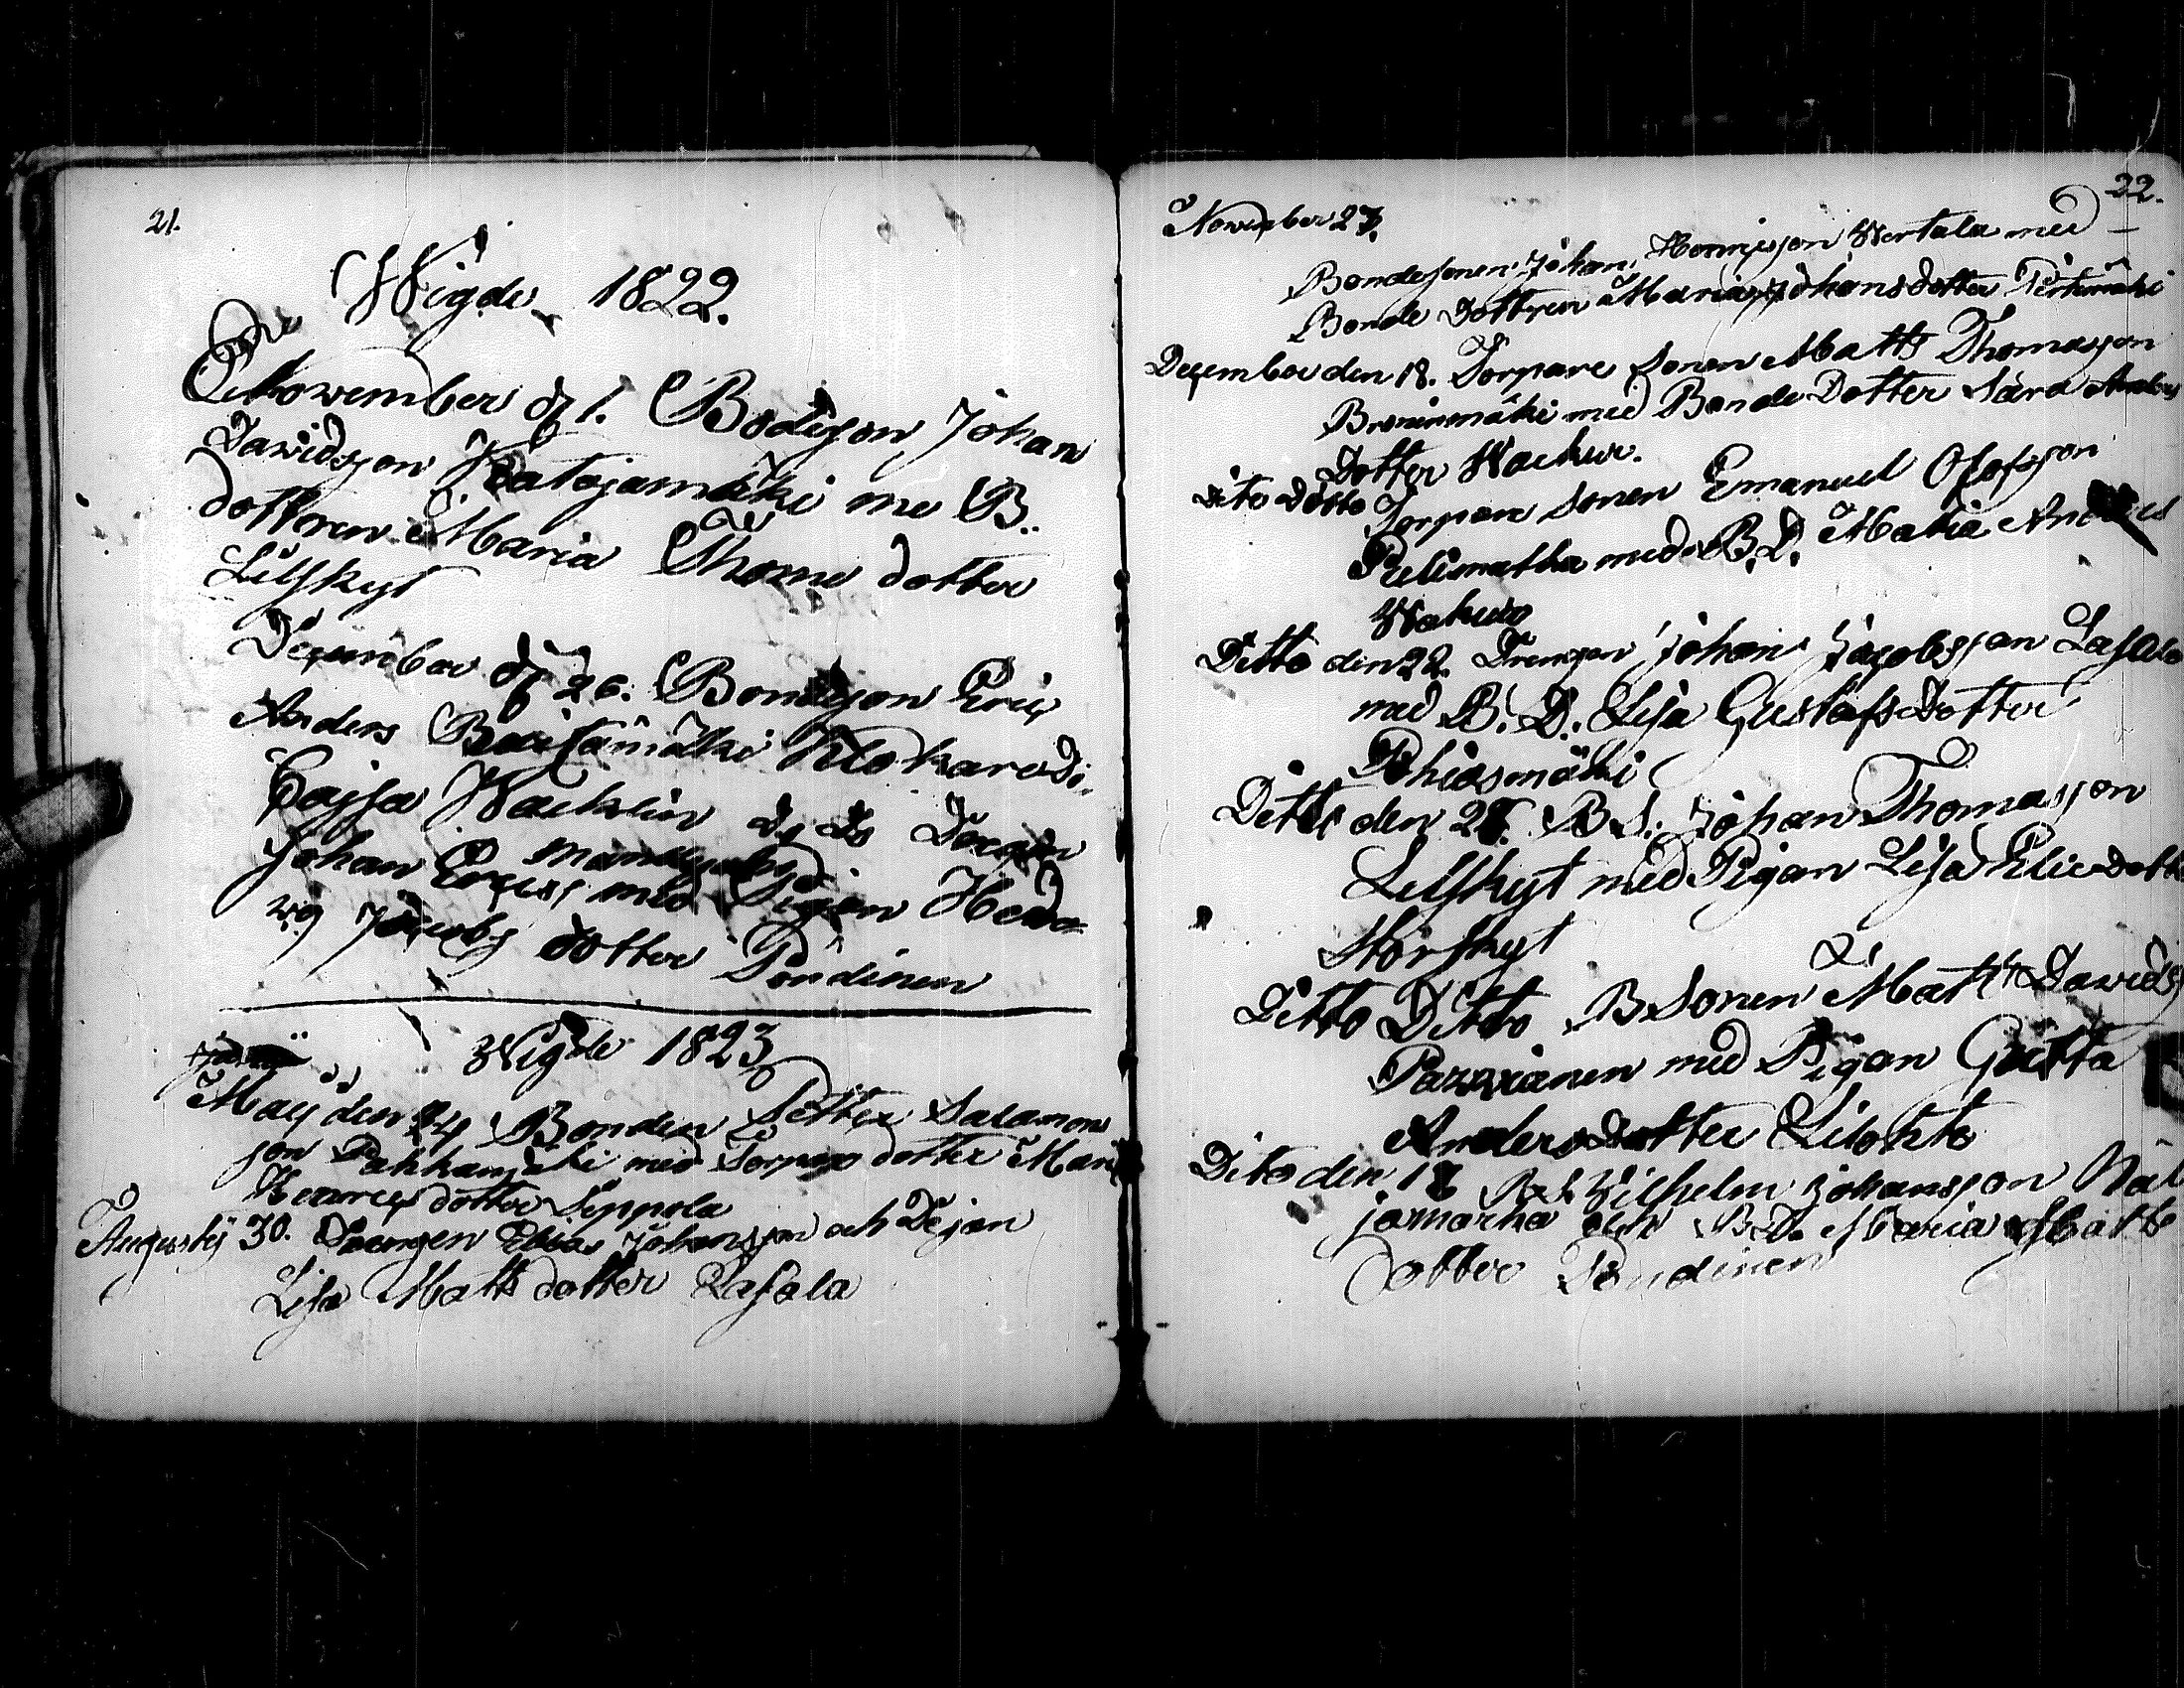 21.
Wigde 1822.
Nowember d 1. Bodesson Johan
Dawidsson Katajamäki me B.
dottren Maria Thoms dotter
Lillskyt
December d 26. Bondesson Eric
Anders Klokare Do.
Caisa Wacklin
Johan Ericss med Pigan Hed
wig Jacobs dotter Pendinen
Wigde 1823
May den 24 Bonden Petter Salamons
son med Torpar dotter Mari
Henrics dotter Seppola
Augusty 30. Drengen Elias Johansson och Pejan
Lisa Matts dotter Lasala
22.
November 27.
Bondesonen Johan Hennisson Wertala med
Bonde Dottren Maria Johans dotter Perkimäki
December den 18. Torpare Sonen Matts Thomasson
med Bonde Dotter Sara Anders
Dotter Wackur.
Dito Ditto Torpare Sonen Emanuel Olofsson
med B. D. Maria Anders
Wakur
Ditto den 22. Drengen Johan Jacobsson Lasala
med B. D. Lisa Gustafs Dotter
Pohiasmäki
Ditto den 28. B S. Johan Thomasson
Lillskyt med Pigan Lisa Elie Dotte
Storskyt
Ditto Ditto B Sonen Matts Dawids
Parwianen med Pigan Greta
Anders dotter Liiokto
Dito den 18 B S. Wilhelm Johansson Nal
jamarka och B D. Maria Matts
Dotter Pendinen